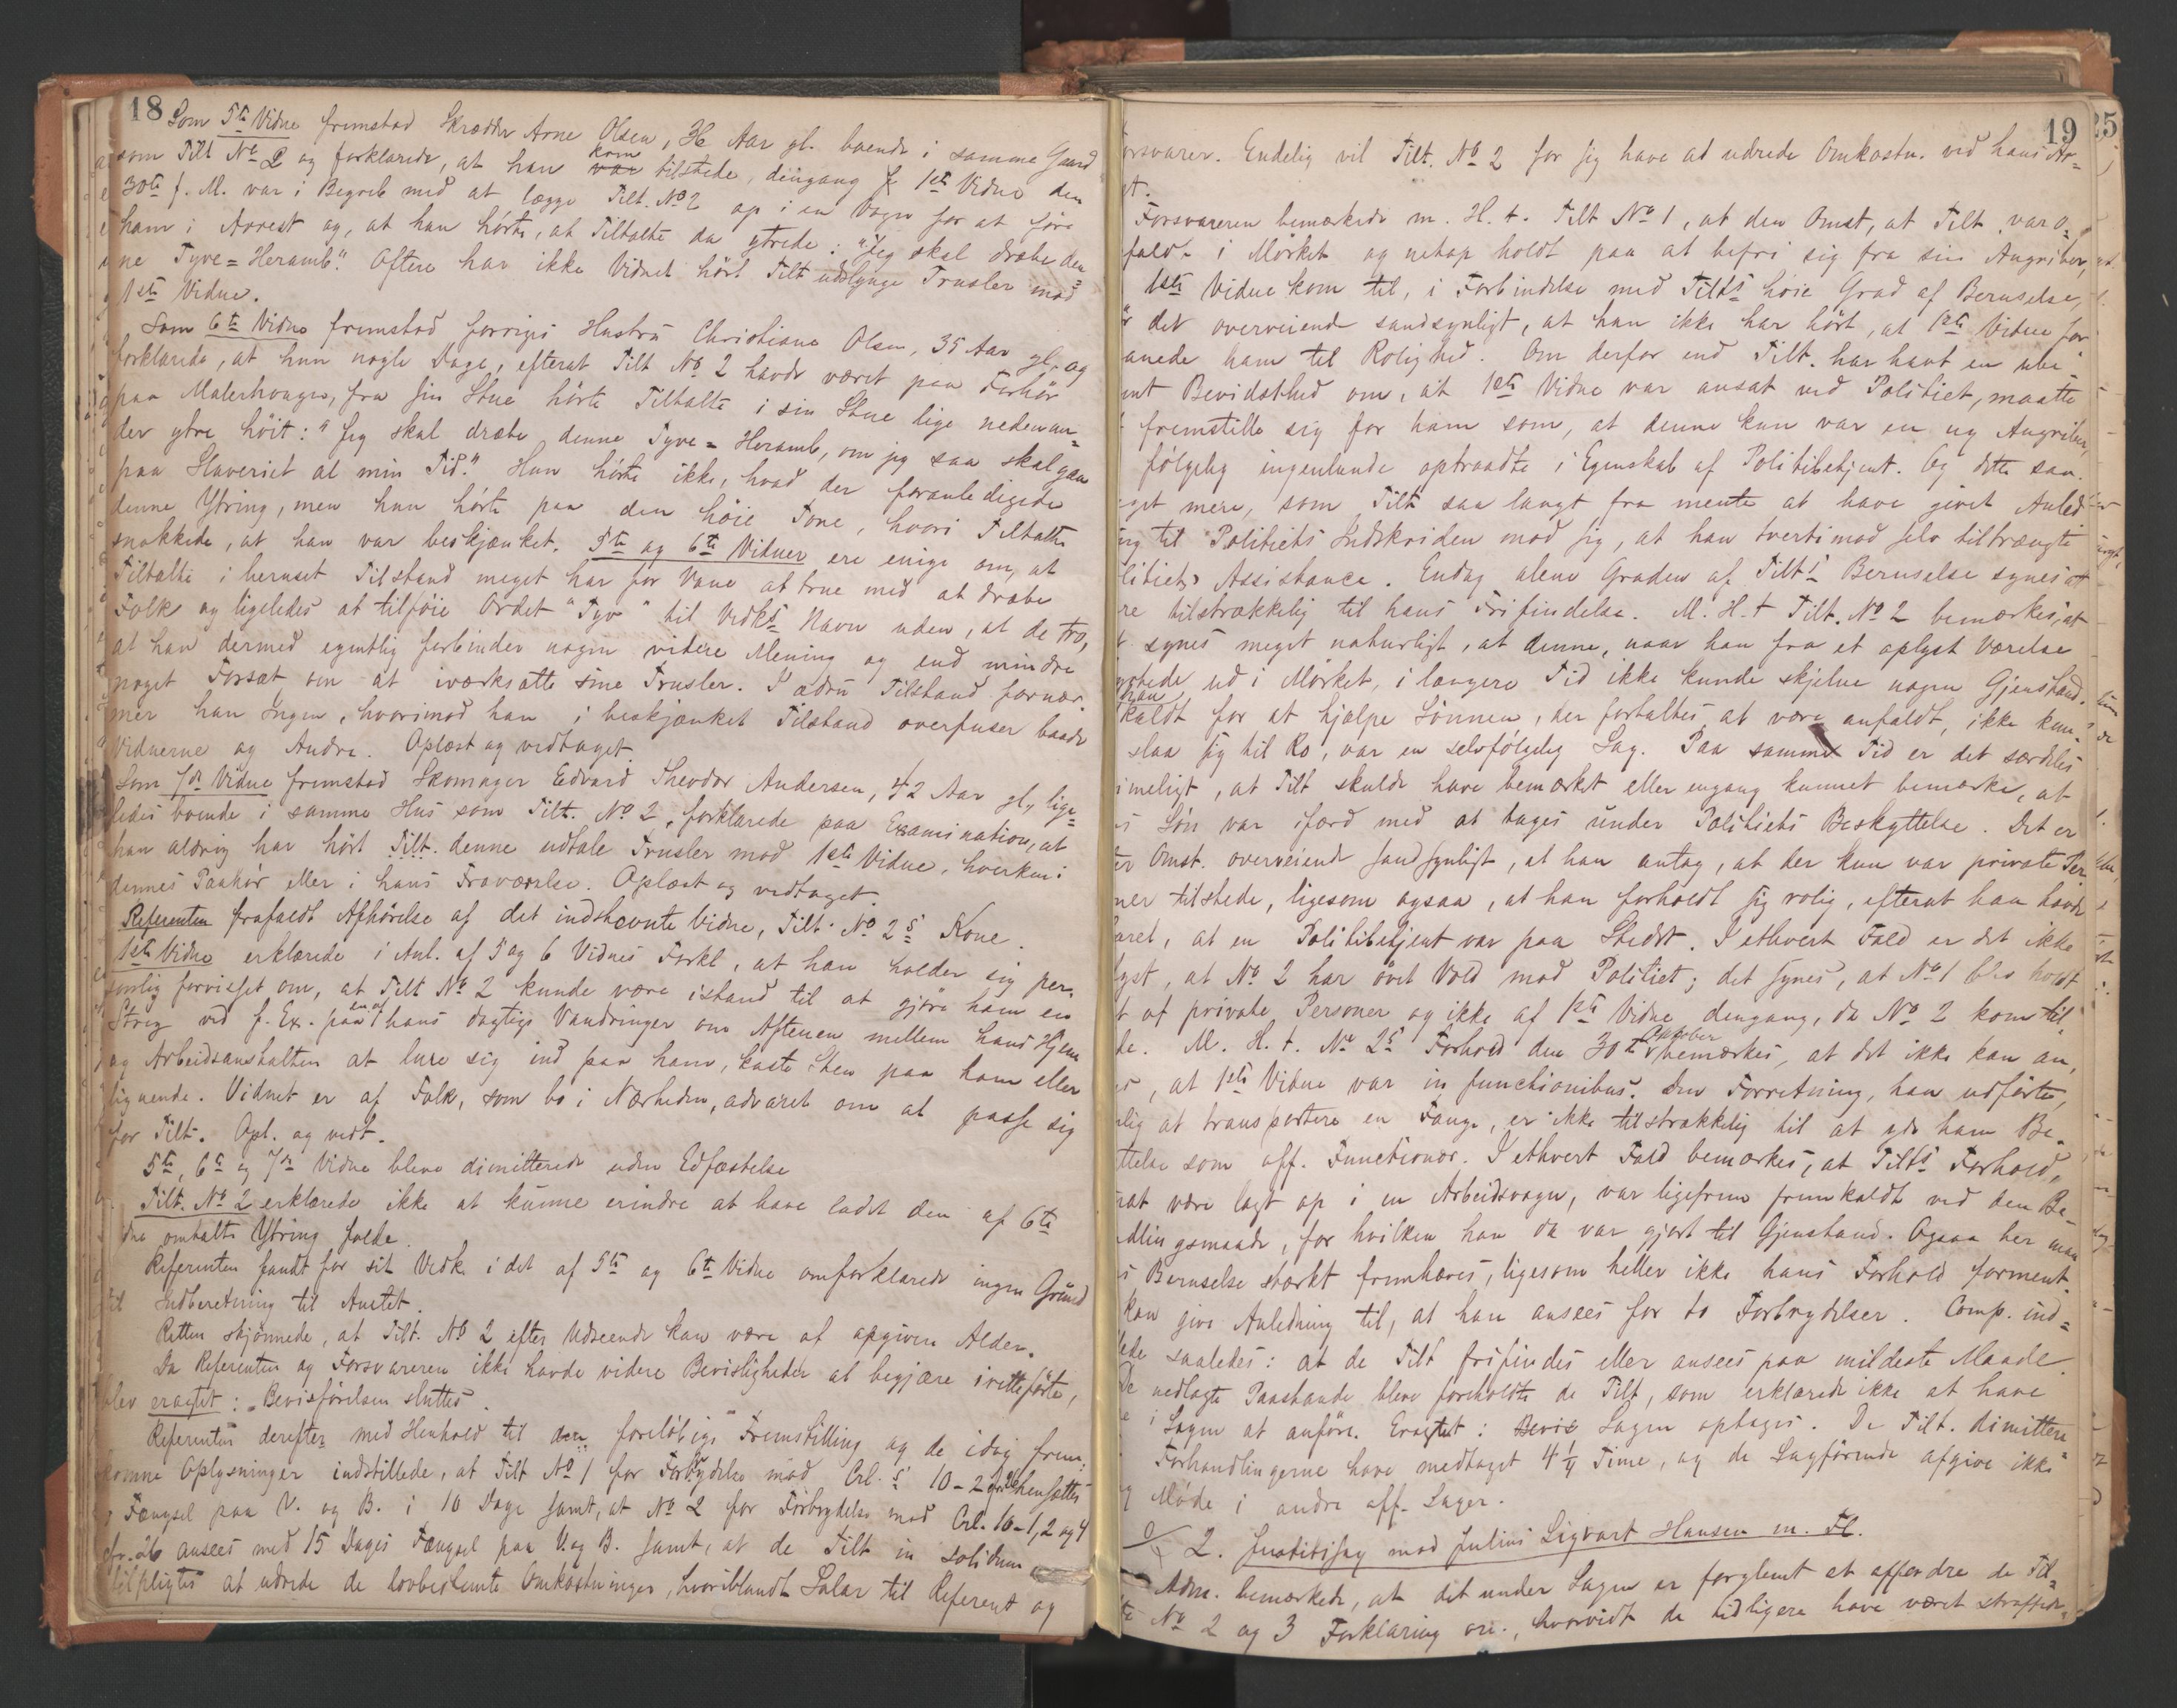 18
Som 5te Vidne fremstod Skrædder Arne Olsen, 36 Aar gl. boende i samme Gaard
som Tilt No 2 og forklarede, at han kom var tilstede, dengang 1ste Vidne den
30te f. M. var i Begreb med at lægge Tilt. No 2 op i en Vogn for at føre
ham i Arrest og, at han hørte, at Tiltalte da ytrede: "Jeg skal dræbe den=
ne Tyve=Heramb". Oftere har ikke Vidnet hørt Tilt udslynge Trusler mod
1ste Vidne.
Som 6te Vidne fremstod forriges Hustru Christiane Olsen, 35 Aar gl. og
forklarede, at hun nogle Dage, efterat Tilt No 2 havde været paa Forhør
paa Malerhaugen, fra sin Stue hørte Tiltalte i sin Stue lige nedenun=
der ytre høit: "Jeg skal dræbe denne Tyve=Heramb, om jeg saa skal gaa
paa Slaveriet al min Tid." Hun hørte ikke, hvad der foranledigede
denne Ytring, men hun hørte paa den høie Tone, hvori Tiltalte
snakkede, at han var beskjænket. 5te og 6te Vidner ere enige om, at
Tiltalte i beruset Tilstand meget har for Vane at true med at dræbe
Folk og ligeledes at tilføie Ordet "Tyv" til Vedks Navn uden, at de tro,
at han dermed egentlig forbinder nogen videre Mening og end mindre
noget Forsæt om at iværksætte sine Trusler. I ædru Tilstand fornær=
mer han Ingen, hvorimod han i beskjænket Tilstand overfuser baade
Vidnerne og Andre. Oplæst og vedtaget.
Som 7de Vidne fremstod Skomager Edvard Theodor Andersen, 42 Aar gl, lige=
ledes boende i samme Hus som Tilt. No 2, forklarede paa Examination, at
han aldrig har hørt Tilt. denne udtale Trusler mod 1ste Vidne, hverken i
dennes Paahør eller i hans Fraværelse. Oplæst og vedtaget.
Referenten frafaldt Afhørelse af det indstevnte Vidne, Tilt. No 2s Kone.
1ste Vidne erklærede i Anl. af 5 og 6 Vidnes Forkl, at han holder sig per=
sonlig forvisset om, at Tilt No 2 kunde være istand til at gjøre ham en
Streg ved f. Ex. paa en af hans dagtige Vandringer om Aftenen mellem hans Hjem
og Arbeidsanstalten at lure sig ind paa ham, kaste Sten paa ham eller
lignende. Vidnet er af Folk, som bo i Nærheden, advaret om at passe sig
for Tilt. Opl. og vedt.
5te, 6te og 7de Vidne bleve dimitterede uden Edfæstelse
Tilt. No 2 erklærede ikke at kunne erindre at have ladet den af 6te
Vidne omtalte Ytring falde.
Referenten fandt for sit Vedk. i det af 5te og 6te Vidne omforklarede ingen Grund
til Indberetning til Amtet.
Retten skjønnede, at Tilt. No 2 efter Udseende kan være af opgiven Alder.
Da Referenten og Forsvareren ikke havde videre Bevisligheder at begjære iretteførte,
blev eragtet: Bevisførelsen sluttes.
Referenten derefter med Henhold til den foreløbige Fremstilling og de idag frem=
komne Oplysninger indstillede, at Tilt No 1 for Forbrydelse mod Crl. § 10-2 cfr 26 hensættes
i Fængsel paa V. og B. i 10 Dage samt, at No 2 for Forbrydelse mod Crl. 10-1, 2 og 4
cfr. 26 ansees med 15 Dages Fængsel paa V og B. samt, at de Tilt in solidum
tilpligtes at udrede de lovbestemte Omkostninger, hvoriblandt Salær til Referent og
19
25
Forsvarer. Endelig vil Tilt. No 2 for sig have at udrede Omkostn. ved hans Ar=
Forsvareren bemærkede m. H. t. Tilt No 1, at den Omst, at Tilt var o=
fald. i Mørket og netop holdt paa at befri sig fra sin Angriber,
1ste Vidne kom til, i Forbindelse med Tilts høie Grad af Beruselse,
det overveiende sandsynligt, at han ikke har hørt, at 1ste Vidne for
anede ham til Rolighed. Om derfor end Tilt. har havt en ube=
mt Bevidsthed om, at 1ste Vidne var ansat ved Politiet, maatte
fremstille sig for ham som, at denne kun var en ny Angriber,
følgelig ingenlunde optraadte i Egenskab af Politibetjent. Og dette saa
get mere, som Tilt saa langt fra mente at have givet Anled
ng til Politiets Indskriden mod sig, at han tvertimod selv tiltrængte
litiets Assistance. Endog alene Graden af Tilts Beruselse synes at
re tilstrækkelig til hans Frifindelse. M. H. t Tilt. No 2 bemærkes, at
synes meget naturligt, at denne, naar han fra et oplyst Værelse
ud i Mørket, i længere Tid ikke kunde skjelne nogen Gjenstand.
kaldt for at hjælpe Sønnen, der fortaltes at være anfaldt, ikke kun=
slaa sig til Ro, var en selvfølgelig Sag. Paa samme Tid er det særdeles
imeligt, at Tilt skulde have bemærket eller engang kunnet bemærke, at
s Søn var ifærd med at tages under Politiets Beskyttelse. Det er
Omst. overveiende sandsynligt, at han antog, at der kun var private Per
ner tilstede, ligesom ogsaa, at han forholdt sig rolig, efterat han havde
aret, at en Politibetjent var paa Stedet. I ethvert Fald er det ikke
yst, at No 2 har øvet Vold mod Politiet; det synes, at No 1 blev holdt
af private Personer og ikke af 1ste Vidne dengang, da No 2 kom til
de. M. H. t. No 2s Forhold den 30te Oktober bemærkes, at det ikke kan an
es, at 1ste Vidne var in functionibus. Den Forretning, han udførte,
nlig at transportere en Fange, er ikke tilstrækkelig til at yde ham Be=
ttelse som off. Functionær. I ethvert Fald bemærkes, at Tilts Forhold,
rat være lagt op i en Arbeidsvogn, var ligefrem fremkaldt ved den Be=
dlingsmaade, for hvilken han da var gjort til Gjenstand. Ogsaa her maa
s Beruselse stærkt fremhæves, ligesom heller ikke hans Forhold forment.
kan give Anledning til, at han ansees for to Forbrydelser. Comp. ind=
lede saaledes: at de Tilt frifindes eller ansees paa mildeste Maade.
De nedlagte Paastande bleve foreholdte de Tilt, som erklærede ikke at have
i Sagen at anføre. Eragtet: Bevis Sagen optages. De Tilt. dimittere=
Forhandlingerne have medtaget 4 1/4 Time, og de Sagførende afgive ikke
Møde i andre off. Sager.
2. Justitssag mod Julius Sigvart Hansen m. Fl.
Adm. bemærkede, at det under Sagen er forglemt at affordre de Til=
te No 2 og 3 Forklaring om, hvorvidt de tidligere have været straffede,